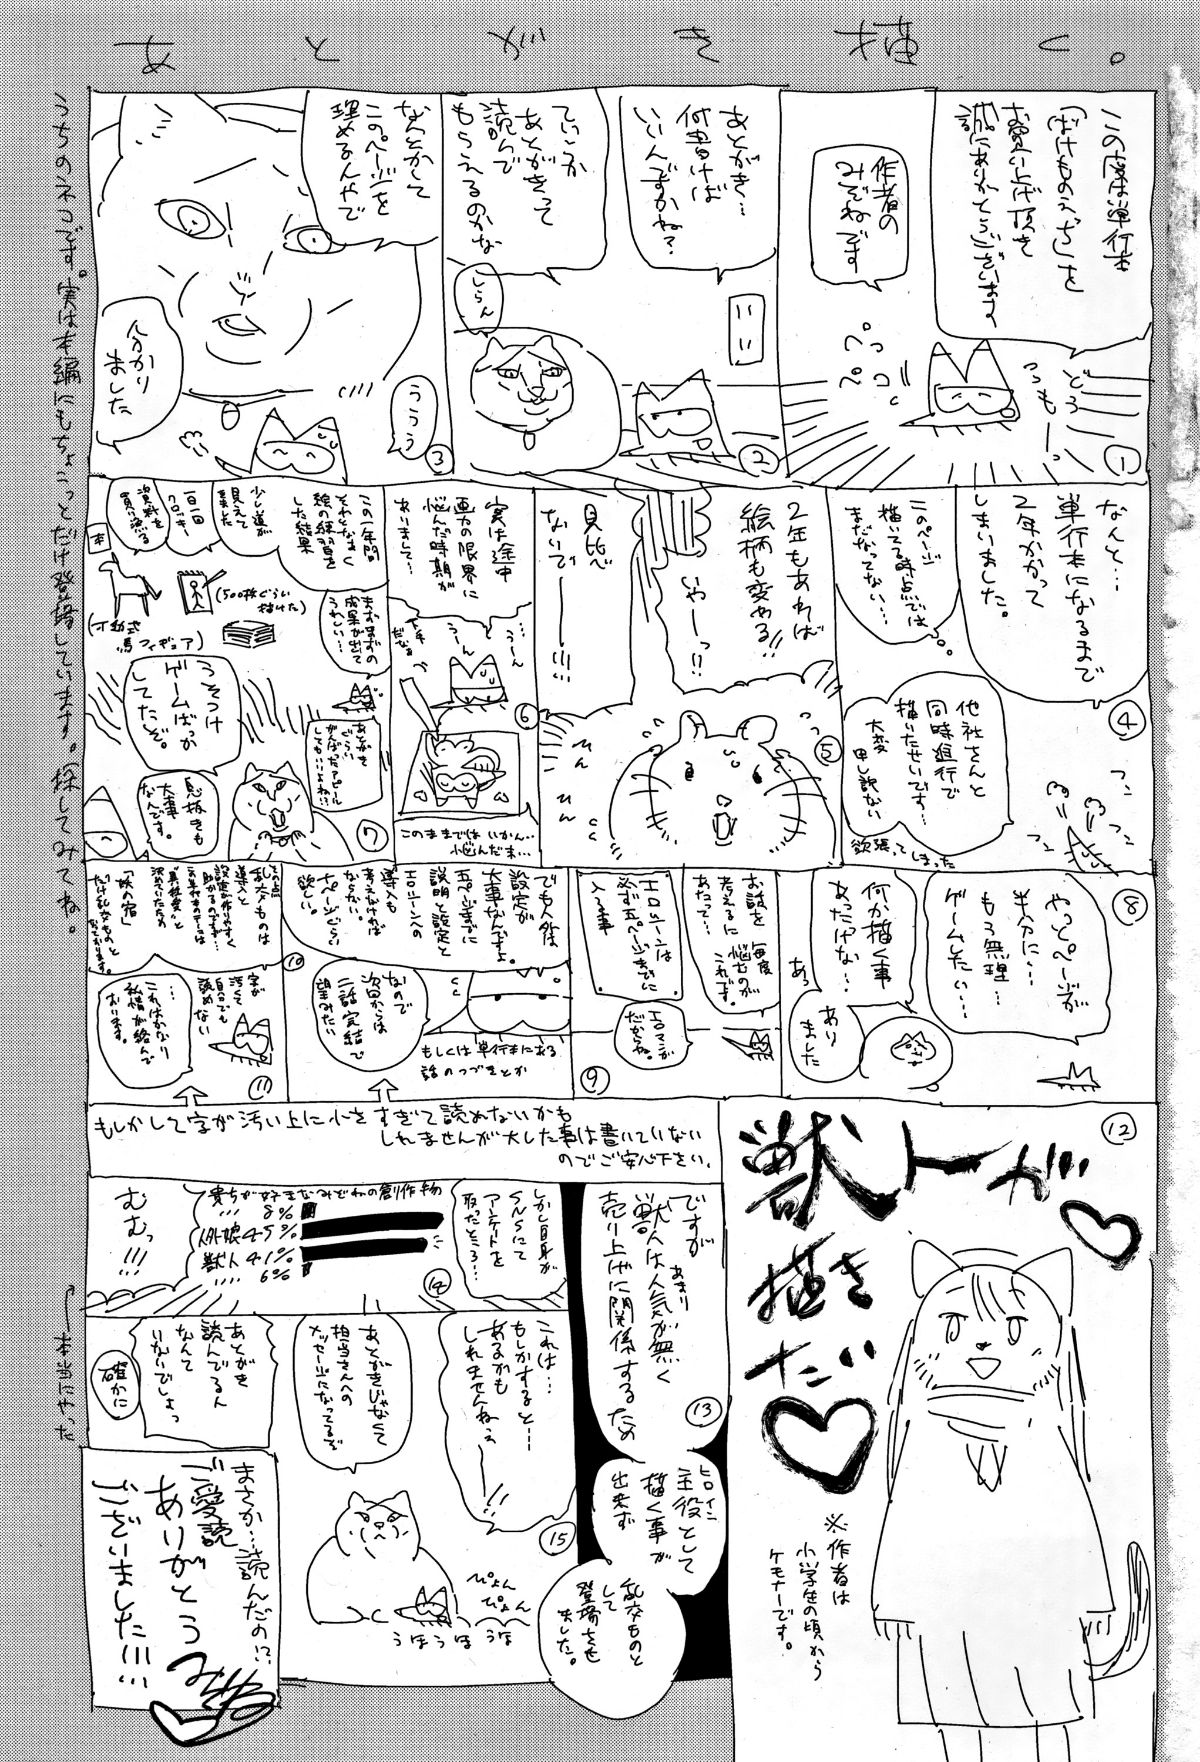 あとがき描く。
この度は単行本
「ばけものえっち」を
お買い上げ頂き
誠にありがとうございます
作者の
みぞねです
どう
もーっ
ペコ
①
あとがき…
何書けば
いいんですかね？
ていうか
あとがきって
読んで
もらえるのかな
しらん
②
なんとかして
このページを
埋めるんやで
ううう
分かり
ました
③
うちのネコです。実は本編にもちょこっとだけ登場しています。探してみてね。
なんと…
単行本になるまで
2年かかって
しまいました。
このページ
描いてる時点では
まだなってない…
他社さんと
同時進行で
描いたせいです…
大変
申し訳ない
欲張ってしまった
④
2年もあれば
絵柄も変わる!!
いやーっ!!
見比べ
ないでーー!!!
ひん
ひん
⑤
実は途中
画力の限界に
悩んだ時期が
ありまして…
…うーん
うーん
このままではいかん…
⑥
この一年間
それとなく
絵の練習を
した結果
少し道が
見えて
きました
一日一回
クロッキー
資料を
買い漁る
本
(500枚ぐらい
描けた)
(可動式
馬フィギュア)
まずまずの
成果が出て
うれしい…
あとがき
ぐらい
がんばったアピール
してもいいよね…
うそつけ
ゲームばっか
してたぞ。
息抜きも
大事
なんです。
⑦
やっとページが
半分に…
もう無理…
ゲームしたい…
何か描く事
あったけな…
あっ
あり
ました
⑧
お話を
考えるに
あたって…
毎度
悩むのが
これです。
エロシーンは
必ず五ページまでに
入る事
エロマンガ
だからね。
⑨
でも人外は
設定が
大事なんですよ。
五ページまでに
説明と設定と
エロシーンへの
導入も
考えなければ
ならない。
十ページぐらい
欲しい。
なので
次回からは
二話完結で
望みたい
もしくは単行本にある
話のつづきとか
⑩
その点
乱交ものは
導入と
設定が作りやすく
助かるのです…
「妖の宿」
だけ乱交ものと
なっております。
…
これはかなり
私情が絡んで
おります。
字が
汚くて
自分でも
読めない
⑪
もしかして字が汚い上に小さすぎて読めないかも
しれませんが大した事は書いていない
のでご安心下さい。
⑫
獣トが
描き
たい
※作者は
小学生の頃から
ケモナーです。
ですが
獣人はあまり
人気が無く
売り上げに関係するため
⑬
主役として
ヒロイン
描く事が
出来ず
乱交ものと
して
登場させ
ました。
しかし自身が
SNSにて
アンケートを
取ったところ…
貴方が好きなみぞねの創作物
〃〃 8%
人外娘 45%
獣人 41%
〃〃 6%
⑭
むむっ
!!!
←本当にやった
これは…
もしかすると…
あるかも
しれませんねぇ
ーー!!
⑮
あとがきじゃなくて
担当さんへの
メッセージになってるぞ
ぴょん
ぴょん
うほうほ
うほ
あとがき
読んでるん
なんて
いないでしょっ
確かに
まさか…読んだの!?
ご愛読
ありがとう
ございました!!!
みぞね